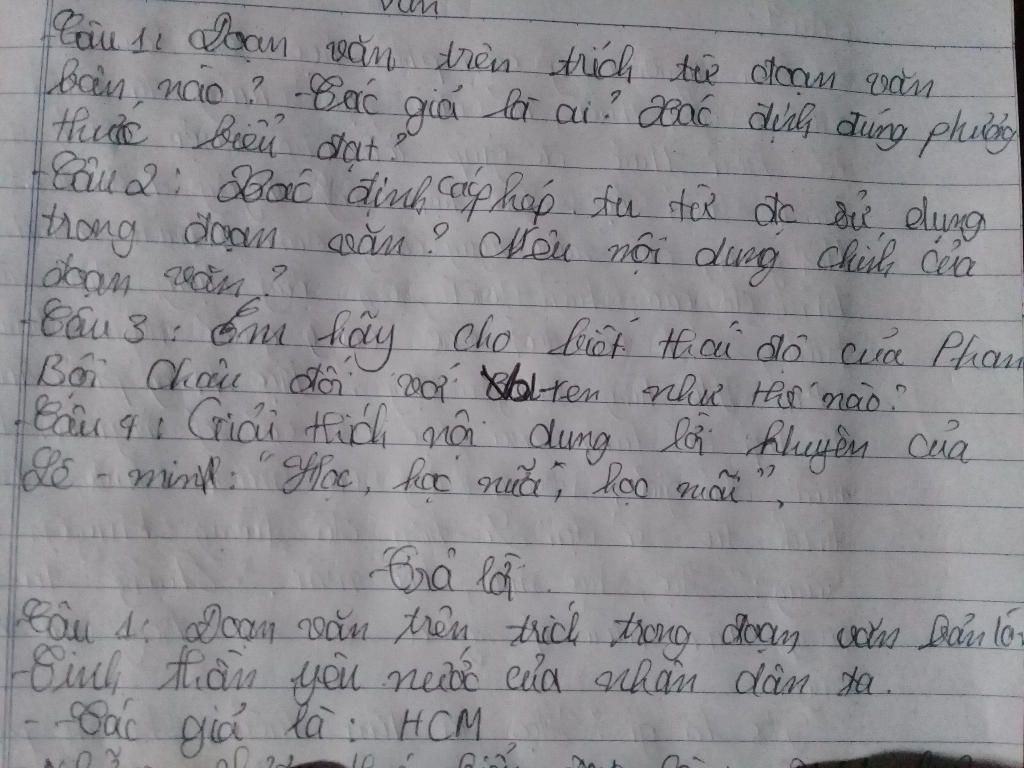 văn
Câu 1: Đoạn văn trên trích từ đoạn văn
bản nào? Tác giả là ai? Xác định đúng phương
thức biểu đạt?
Câu 2: Xác định các pháp tu từ đc sử dụng
trong đoạn văn? Nêu nội dung chính của
đoạn văn?
Câu 3: Em hãy cho biết thái độ của Phan
Bội Châu đối với -ren như thế nào?
Câu 4: Giải thích nội dung lời khuyên của
Lê-nin: "Học, học nữa, học mãi",
Trả lời
Câu 1: Đoạn văn trên trích trong đoạn văn bản là
Tinh thần yêu nước của nhân dân ta.
- Tác giả là: HCM